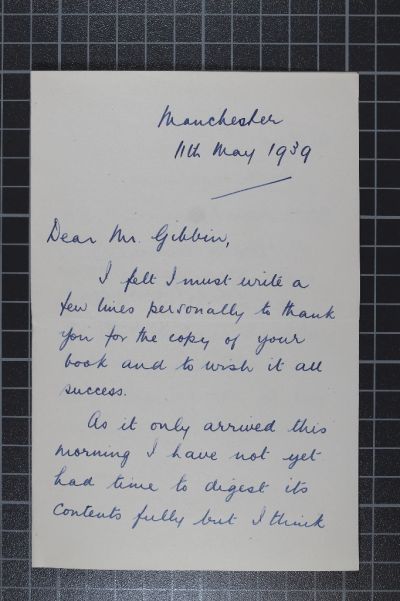 Manchester
11th May 1939
Dear Mr. Gibbin,
I felt I must write a
few lines personally to thank
you for the copy of your
book and to wish it all
success.
As it only arrived this
morning I have not yet
had time to digest its
contents fully but I think